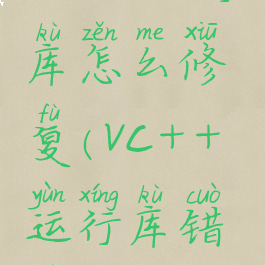 kù zěn me xiū
库怎么修
fù
复(VC++
yùn xíng kù cuò
运行库错